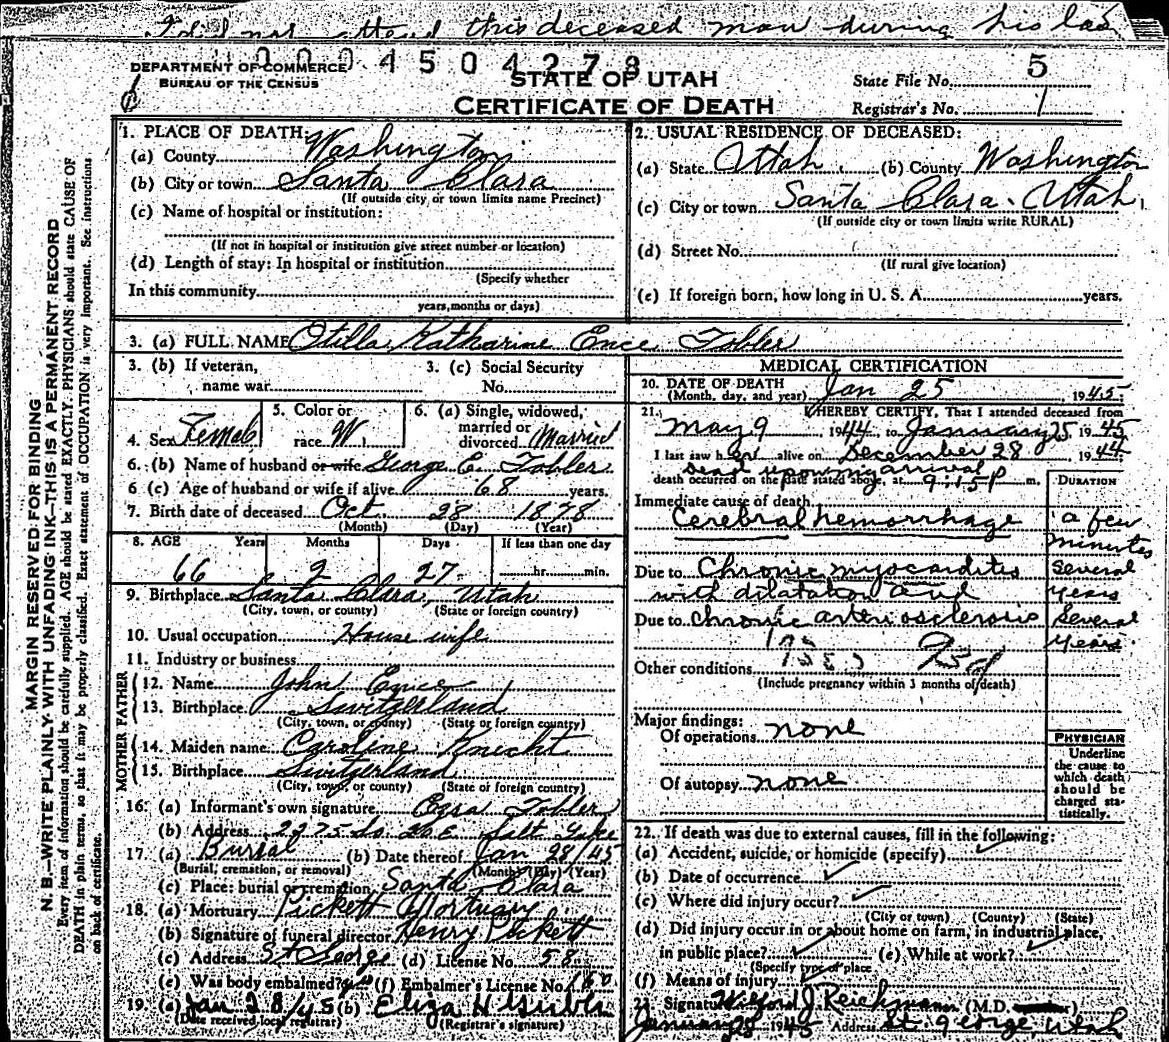 I did not attend this deceased man during his las
DEPARTMENT OF COMMERCE
BUREAU OF THE CENSUS
STATE OF UTAH
CERTIFICATE OF DEATH
State File No. 5
Registrar's No. 1
MARGIN RESERVED FOR BINDING
N. B.—WRITE PLAINLY WITH UNFADING INK—THIS IS A PERMANENT RECORD
Every item of information should be carefully supplied. AGE should be stated EXACTLY. PHYSICIANS should state CAUSE OF
DEATH in plain terms, so that it may be properly classified. Exact statement of OCCUPATION is very important. See instructions
on back of certificate.
1. PLACE OF DEATH:
(a) County Washington
(b) City or town Santa Clara
(If outside city or town limits name Precinct)
(c) Name of hospital or institution:
(If not in hospital or institution give street number or location)
(d) Length of stay: In hospital or institution
(Specify whether
In this community
years, months or days)
2. USUAL RESIDENCE OF DECEASED:
(a) State Utah (b) County Washington
(c) City or town Santa Clara. Utah
(If outside city or town limits write RURAL)
(d) Street No.
(If rural give location)
(e) If foreign born, how long in U. S. A. years.
3. (a) FULL NAME Otilla Katharine Ence Tobler
3. (b) If veteran,
name war
3. (c) Social Security
No.
4. Sex Female
5. Color or
race W
6. (a) Single, widowed,
married or
divorced Married
6. (b) Name of husband or wife George E. Tobler
6 (c) Age of husband or wife if alive 68 years.
7. Birth date of deceased Oct. 28 1878
(Month) (Day) (Year)
8. AGE Years Months Days If less than one day
66 2 27 hr. min.
9. Birthplace Santa Clara, Utah
(City, town, or county) (State or foreign country)
10. Usual occupation House wife
11. Industry or business
FATHER
12. Name John Ence
13. Birthplace Switzerland
(City, town, or county) (State or foreign country)
MOTHER
14. Maiden name Caroline Knecht
15. Birthplace Switzerland
(City, town, or county) (State or foreign country)
16. (a) Informant's own signature Ezra Tobler
(b) Address 2975 So. 20 E Salt Lake
17. (a) Burial (b) Date thereof Jan 28/45
(Burial, cremation, or removal) (Month) (Day) (Year)
(c) Place: burial or cremation Santa Clara
18. (a) Mortuary Pickett Mortuary
(b) Signature of funeral director Henry Pickett
(c) Address St George (d) License No. 58
(e) Was body embalmed? yes (f) Embalmer's License No. 160
19. (a) Jan 28/45 (b) Eliza H Gubler
(Date received local registrar) (Registrar's signature)
MEDICAL CERTIFICATION
20. DATE OF DEATH
(Month, day, and year) Jan 25, 1945
21. I HEREBY CERTIFY, That I attended deceased from
May 9 1944, to January 25, 1945
I last saw her alive on December 28, 1944
Dead upon my arrival
death occurred on the date stated above, at 9:15 P m.
DURATION
Immediate cause of death
Cerebral hemorrhage a few
minutes
Due to Chronic myocarditis Several
with dilatation and years
Due to chronic arteriosclerosis Several
years
Other conditions
(Include pregnancy within 3 months of death)
Major findings:
Of operations none
Of autopsy none
PHYSICIAN
Underline
the cause to
which death
should be
charged sta-
tistically.
22. If death was due to external causes, fill in the following:
(a) Accident, suicide, or homicide (specify)
(b) Date of occurrence
(c) Where did injury occur?
(City or town) (County) (State)
(d) Did injury occur in or about home on farm, in industrial place,
in public place? (e) While at work?
(Specify type of place
(f) Means of injury
23. Signature Wilford J Reichmann (M.D. )
January 28 1945 Address St. George, Utah